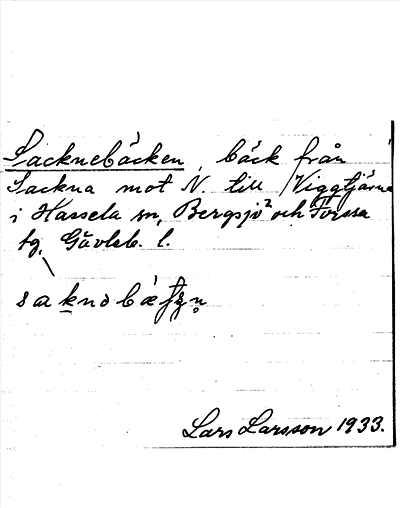 Sacknebäcken, bäck från
Sackna mot N. till Viggtjärne
i Hassela sn, Bergsjö och Forssa
tg, Gävleb. l.
Lars Larsson 1933.